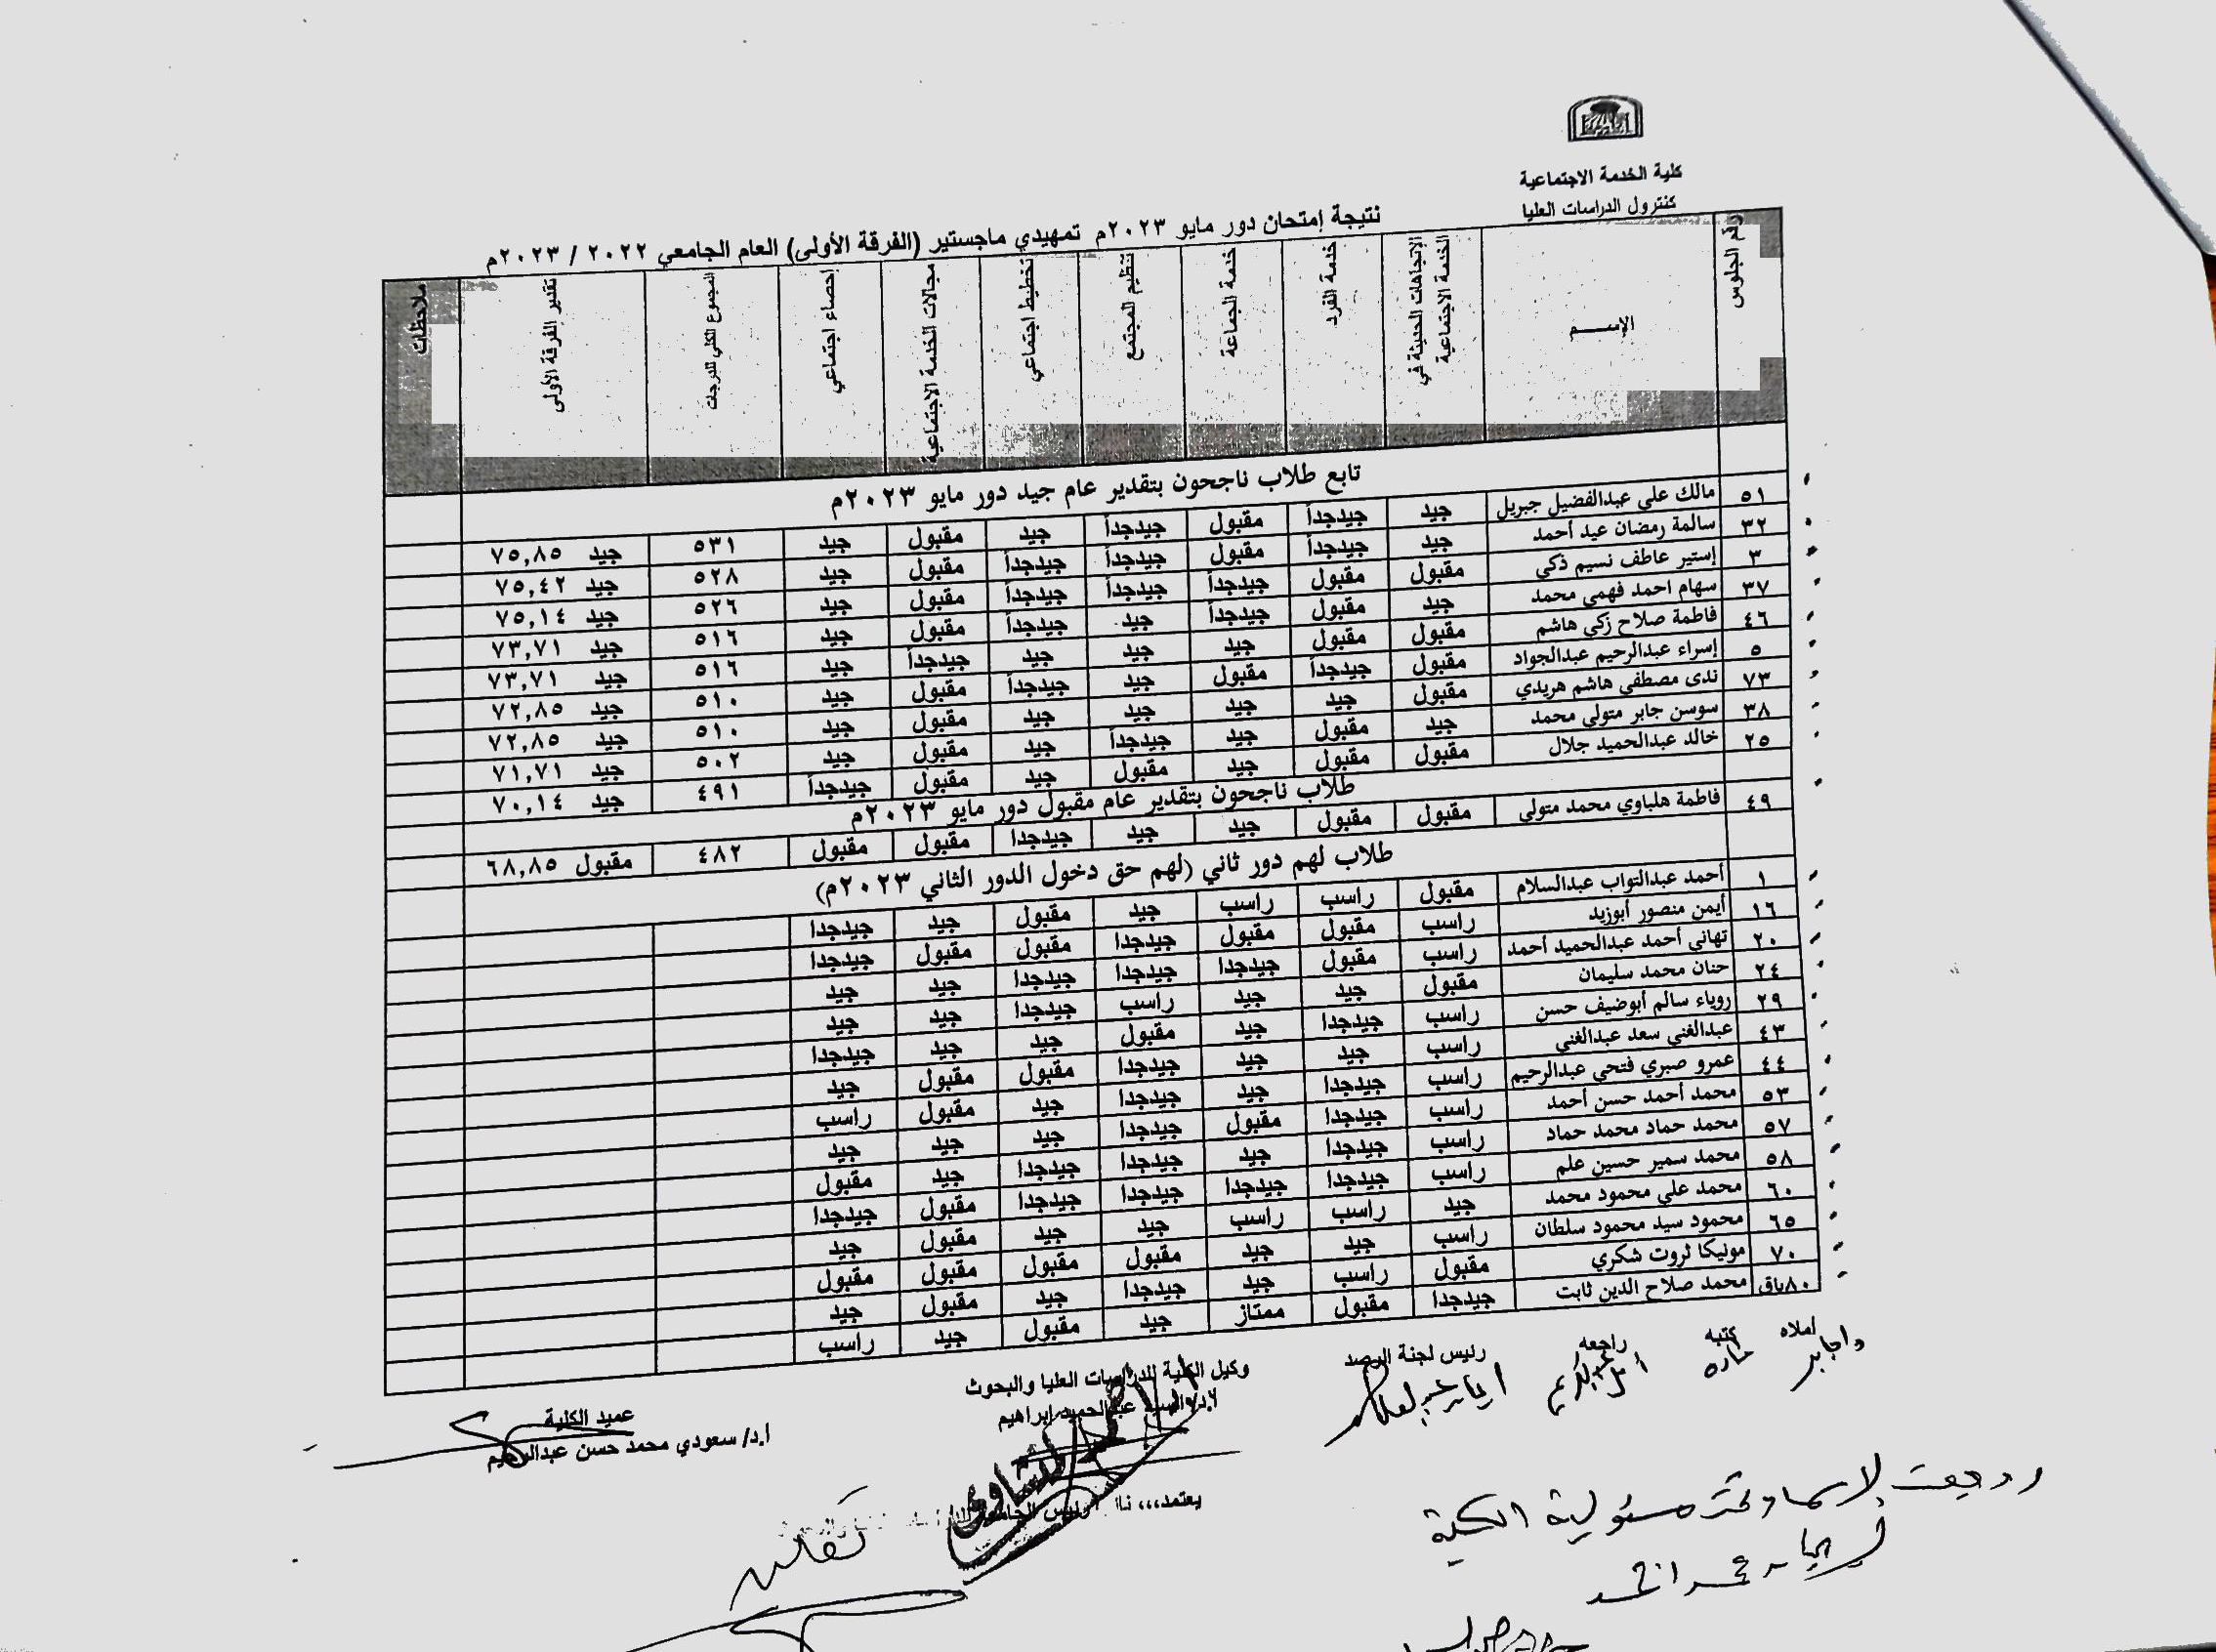 كلية الخدمة الاجتماعية
كنترول الدراسات العليا
نتيجة إمتحان دور مايو ٢٠٢٣م تمهيدي ماجستير (الفرقة الأولى) العام الجامعي ٢٠٢٢ / ٢٠٢٣م
رقم الجلوس الإســـم الإتجاهات الحديثة في الخدمة الاجتماعية خدمة الفرد خدمة الجماعة تنظيم المجتمع تخطيط اجتماعي مجالات الخدمة الاجتماعية إحصاء اجتماعي المجموع الكلي للدرجات تقدير الفرقة الأولى ملاحظات
تابع طلاب ناجحون بتقدير عام جيد دور مايو ٢٠٢٣م
٥١ مالك علي عبدالفضيل جبريل جيد جيدجداً مقبول جيدجداً جيد مقبول جيد ٥٣١ جيد ٧٥,٨٥
٣٢ سالمة رمضان عيد أحمد جيد جيدجداً مقبول جيدجداً جيدجداً مقبول جيد ٥٢٨ جيد ٧٥,٤٢
٣ إستير عاطف نسيم ذكي مقبول مقبول جيدجداً جيدجداً جيدجداً مقبول جيد ٥٢٦ جيد ٧٥,١٤
٣٧ سهام احمد فهمي محمد جيد مقبول جيدجداً جيد جيدجداً مقبول جيد ٥١٦ جيد ٧٣,٧١
٤٦ فاطمة صلاح زكي هاشم مقبول مقبول جيد جيد جيد جيدجداً جيد ٥١٦ جيد ٧٣,٧١
٥ إسراء عبدالرحيم عبدالجواد مقبول جيدجداً مقبول جيد جيدجداً مقبول جيد ٥١٠ جيد ٧٢,٨٥
٧٣ ندى مصطفى هاشم هريدي مقبول جيد جيد جيد جيد مقبول جيد ٥١٠ جيد ٧٢,٨٥
٣٨ سوسن جابر متولي محمد جيد مقبول جيد جيدجداً جيد مقبول جيد ٥٠٢ جيد ٧١,٧١
٢٥ خالد عبدالحميد جلال مقبول مقبول جيد مقبول جيد مقبول جيدجداً ٤٩١ جيد ٧٠,١٤
طلاب ناجحون بتقدير عام مقبول دور مايو ٢٠٢٣م
٤٩ فاطمة هلباوي محمد متولي مقبول مقبول جيد جيد جيدجدا مقبول مقبول ٤٨٢ مقبول ٦٨,٨٥
طلاب لهم دور ثاني (لهم حق دخول الدور الثاني ٢٠٢٣م)
١ أحمد عبدالتواب عبدالسلام مقبول راسب راسب جيد مقبول جيد جيدجدا
١٦ أيمن منصور أبوزيد راسب مقبول مقبول جيدجدا مقبول مقبول جيدجدا
٢٠ تهاني أحمد عبدالحميد أحمد راسب مقبول جيدجدا جيدجدا جيدجدا جيد جيد
٢٤ حنان محمد سليمان مقبول جيد جيد راسب جيدجدا جيد جيد
٢٩ روياء سالم أبوضيف حسن راسب جيدجدا جيد مقبول جيد جيد جيدجدا
٤٣ عبدالغني سعد عبدالغني راسب جيد جيد جيدجدا مقبول مقبول جيد
٤٤ عمرو صبري فتحي عبدالرحيم راسب جيدجدا جيد جيدجدا جيد مقبول راسب
٥٣ محمد أحمد حسن أحمد راسب جيدجدا مقبول جيدجدا جيد جيد جيد
٥٧ محمد حماد محمد حماد راسب جيدجدا جيد جيدجدا جيدجدا جيد مقبول
٥٨ محمد سمير حسين علم راسب جيدجدا جيدجدا جيدجدا جيدجدا مقبول جيدجدا
٦٠ محمد علي محمود محمد جيد راسب راسب جيد جيد مقبول جيد
٦٥ محمود سيد محمود سلطان راسب جيد جيد مقبول مقبول مقبول مقبول
٧٠ مونيكا ثروت شكري مقبول راسب جيد جيدجدا جيد مقبول جيد
٨٠باق محمد صلاح الدين ثابت جيدجدا مقبول ممتاز جيد مقبول جيد راسب
أملاه كتبه راجعه رئيس لجنة الرصد وكيل الكلية للدراسات العليا والبحوث عميد الكلية
عبدالحميد إبراهيم أ.د/ سعودي محمد حسن عبدالرحيم
يعتمد،،، رئيس الجامعة
مسئولية الكلية